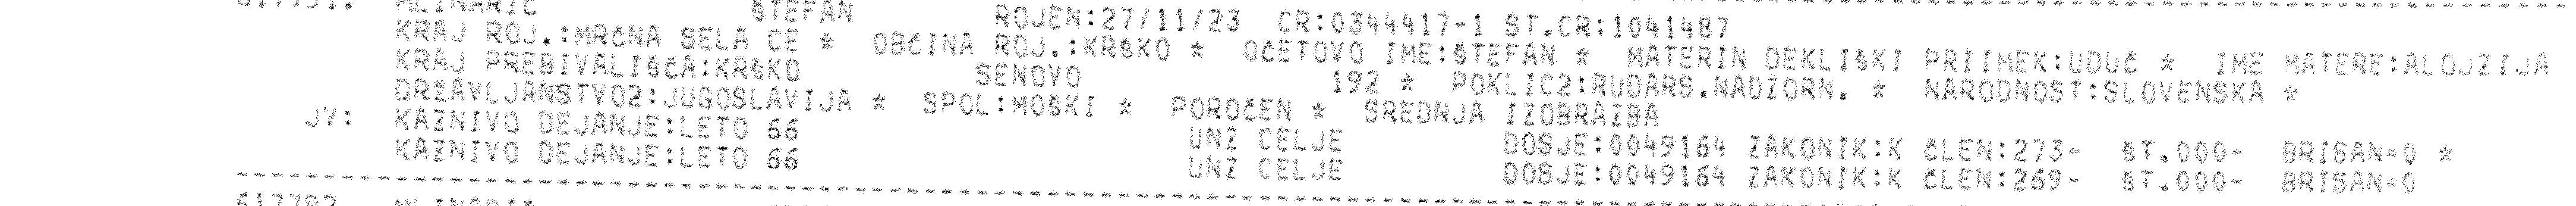 617751. MLINARIČ ŠTEFAN ROJEN:27/11/23 CR:0344417-1 ŠT.CR:1041487
KRAJ ROJ.:MRČNA SELA CE * OBČINA ROJ.:KRŠKO * OČETOVO IME:ŠTEFAN * MATERIN DEKLIŠKI PRIIMEK:UDUČ * IME MATERE:ALOJZIJA
KRAJ PREBIVALIŠČA:KRŠKO SENOVO 192 * POKLIC2:RUDARS.NADZORN. * NARODNOST:SLOVENSKA *
DRŽAVLJANSTVO2:JUGOSLAVIJA * SPOL:MOŠKI * POROČEN * SREDNJA IZOBRAZBA
JV: KAZNIVO DEJANJE:LETO 66 UNZ CELJE DOSJE:0049164 ZAKONIK:K ČLEN:273- ŠT.000- BRISAN=0 *
KAZNIVO DEJANJE:LETO 66 UNZ CELJE DOSJE:0049164 ZAKONIK:K ČLEN:269- ŠT.000- BRISAN=0